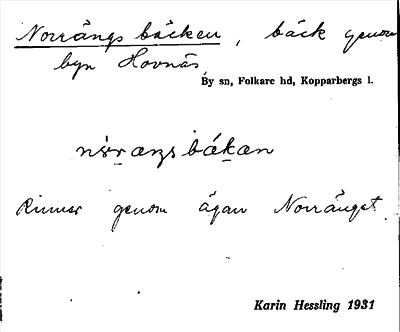 Norrängsbäcken, bäck genom
byn Hovnäs,
By sn, Folkare hd, Kopparbergs l.
Rinner genom ägan Norränget.
Karin Hessling 1931